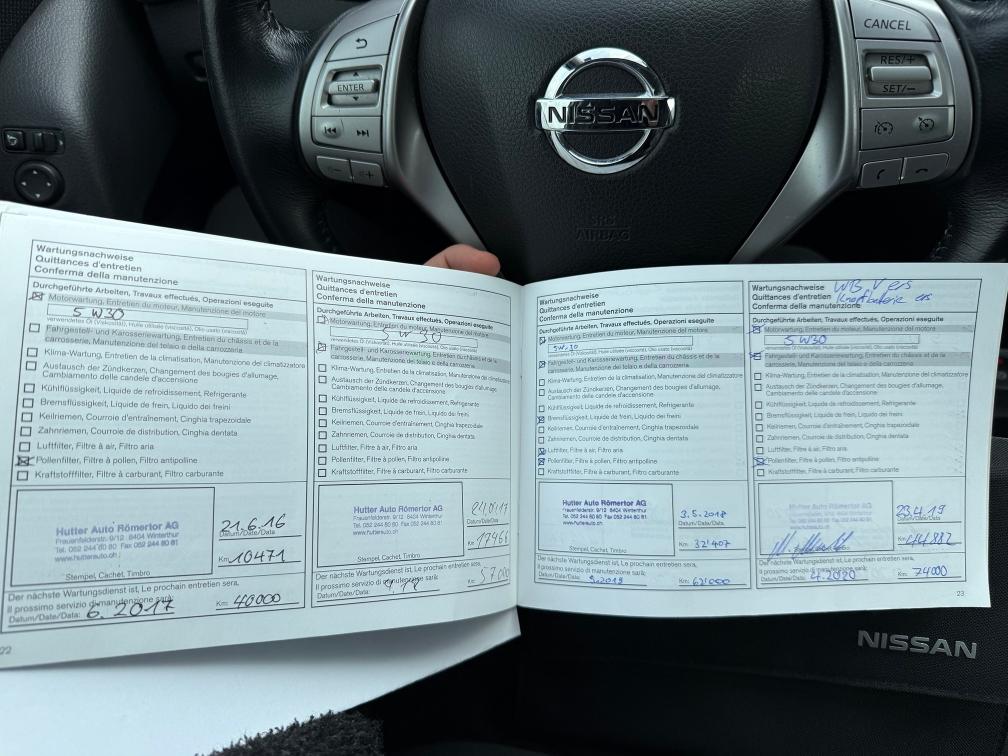 CANCEL
RES/+
SET/−
ENTER
NISSAN
SRS
AIRBAG
Wartungsnachweise
Quittances d'entretien
Conferma della manutenzione
Durchgeführte Arbeiten, Travaux effectués, Operazioni eseguite
Motorwartung, Entretien du moteur, Manutenzione del motore
5 W30
verwendetes Öl (Viskosität), Huile utilisée (viscosité), Olio usato (viscosità)
Fahrgestell- und Karosseriewartung, Entretien du châssis et de la
carrosserie, Manutenzione del telaio e della carrozzeria
Klima-Wartung, Entretien de la climatisation, Manutenzione del climatizzatore
Austausch der Zündkerzen, Changement des bougies d'allumage,
Cambiamento delle candele d'accensione
Kühlflüssigkeit, Liquide de refroidissement, Refrigerante
Bremsflüssigkeit, Liquide de frein, Liquido dei freini
Keilriemen, Courroie d'entraînement, Cinghia trapezoidale
Zahnriemen, Courroie de distribution, Cinghia dentata
Luftfilter, Filtre à air, Filtro aria
Pollenfilter, Filtre à pollen, Filtro antipolline
Kraftstofffilter, Filtre à carburant, Filtro carburante
Hutter Auto Römertor AG
Frauenfelderstr. 9/12 8404 Winterthur
Tel. 052 244 80 80 Fax 052 244 80 81
www.hutterauto.ch
Stempel, Cachet, Timbro
21.6.16
Datum/Date/Data:
Km: 10471
Der nächste Wartungsdienst ist, Le prochain entretien sera,
Il prossimo servizio di manutenzione sarà:
Datum/Date/Data: 6.2017 Km: 40000
22
Wartungsnachweise
Quittances d'entretien
Conferma della manutenzione
Durchgeführte Arbeiten, Travaux effectués, Operazioni eseguite
Motorwartung, Entretien du moteur, Manutenzione del motore
5 W30
verwendetes Öl (Viskosität), Huile utilisée (viscosité), Olio usato (viscosità)
Fahrgestell- und Karosseriewartung, Entretien du châssis et de la
carrosserie, Manutenzione del telaio e della carrozzeria
Klima-Wartung, Entretien de la climatisation, Manutenzione del climatizzatore
Austausch der Zündkerzen, Changement des bougies d'allumage,
Cambiamento delle candele d'accensione
Kühlflüssigkeit, Liquide de refroidissement, Refrigerante
Bremsflüssigkeit, Liquide de frein, Liquido dei freini
Keilriemen, Courroie d'entraînement, Cinghia trapezoidale
Zahnriemen, Courroie de distribution, Cinghia dentata
Luftfilter, Filtre à air, Filtro aria
Pollenfilter, Filtre à pollen, Filtro antipolline
Kraftstofffilter, Filtre à carburant, Filtro carburante
Hutter Auto Römertor AG
Frauenfelderstr. 9/12 8404 Winterthur
Tel. 052 244 80 80 Fax 052 244 80 81
www.hutterauto.ch
Stempel, Cachet, Timbro
Datum/Date/Data:
Km:
Der nächste Wartungsdienst ist, Le prochain entretien sera,
Il prossimo servizio di manutenzione sarà:
Datum/Date/Data: Km: 57000
Wartungsnachweise
Quittances d'entretien
Conferma della manutenzione
Durchgeführte Arbeiten, Travaux effectués, Operazioni eseguite
Motorwartung, Entretien du moteur, Manutenzione del motore
5W-30
verwendetes Öl (Viskosität), Huile utilisée (viscosité), Olio usato (viscosità)
Fahrgestell- und Karosseriewartung, Entretien du châssis et de la
carrosserie, Manutenzione del telaio e della carrozzeria
Klima-Wartung, Entretien de la climatisation, Manutenzione del climatizzatore
Austausch der Zündkerzen, Changement des bougies d'allumage,
Cambiamento delle candele d'accensione
Kühlflüssigkeit, Liquide de refroidissement, Refrigerante
Bremsflüssigkeit, Liquide de frein, Liquido dei freini
Keilriemen, Courroie d'entraînement, Cinghia trapezoidale
Zahnriemen, Courroie de distribution, Cinghia dentata
Luftfilter, Filtre à air, Filtro aria
Pollenfilter, Filtre à pollen, Filtro antipolline
Kraftstofffilter, Filtre à carburant, Filtro carburante
Hutter Auto Römertor AG
Frauenfelderstr. 9/12 8404 Winterthur
Tel. 052 244 80 80 Fax 052 244 80 81
www.hutterauto.ch
Stempel, Cachet, Timbro
3.5.2018
Datum/Date/Data:
Km: 32'407
Der nächste Wartungsdienst ist, Le prochain entretien sera,
Il prossimo servizio di manutenzione sarà:
Datum/Date/Data: 5.2019 Km: 62'000
Wartungsnachweise
Quittances d'entretien
Conferma della manutenzione
Durchgeführte Arbeiten, Travaux effectués, Operazioni eseguite
Motorwartung, Entretien du moteur, Manutenzione del motore
5W30
verwendetes Öl (Viskosität), Huile utilisée (viscosité), Olio usato (viscosità)
Fahrgestell- und Karosseriewartung, Entretien du châssis et de la
carrosserie, Manutenzione del telaio e della carrozzeria
Klima-Wartung, Entretien de la climatisation, Manutenzione del climatizzatore
Austausch der Zündkerzen, Changement des bougies d'allumage,
Cambiamento delle candele d'accensione
Kühlflüssigkeit, Liquide de refroidissement, Refrigerante
Bremsflüssigkeit, Liquide de frein, Liquido dei freini
Keilriemen, Courroie d'entraînement, Cinghia trapezoidale
Zahnriemen, Courroie de distribution, Cinghia dentata
Luftfilter, Filtre à air, Filtro aria
Pollenfilter, Filtre à pollen, Filtro antipolline
Kraftstofffilter, Filtre à carburant, Filtro carburante
Hutter Auto Römertor AG
Stempel, Cachet, Timbro
23.4.19
Datum/Date/Data:
Km: 44'882
Der nächste Wartungsdienst ist, Le prochain entretien sera,
Il prossimo servizio di manutenzione sarà:
Datum/Date/Data: 4.2020 Km: 74000
23
NISSAN